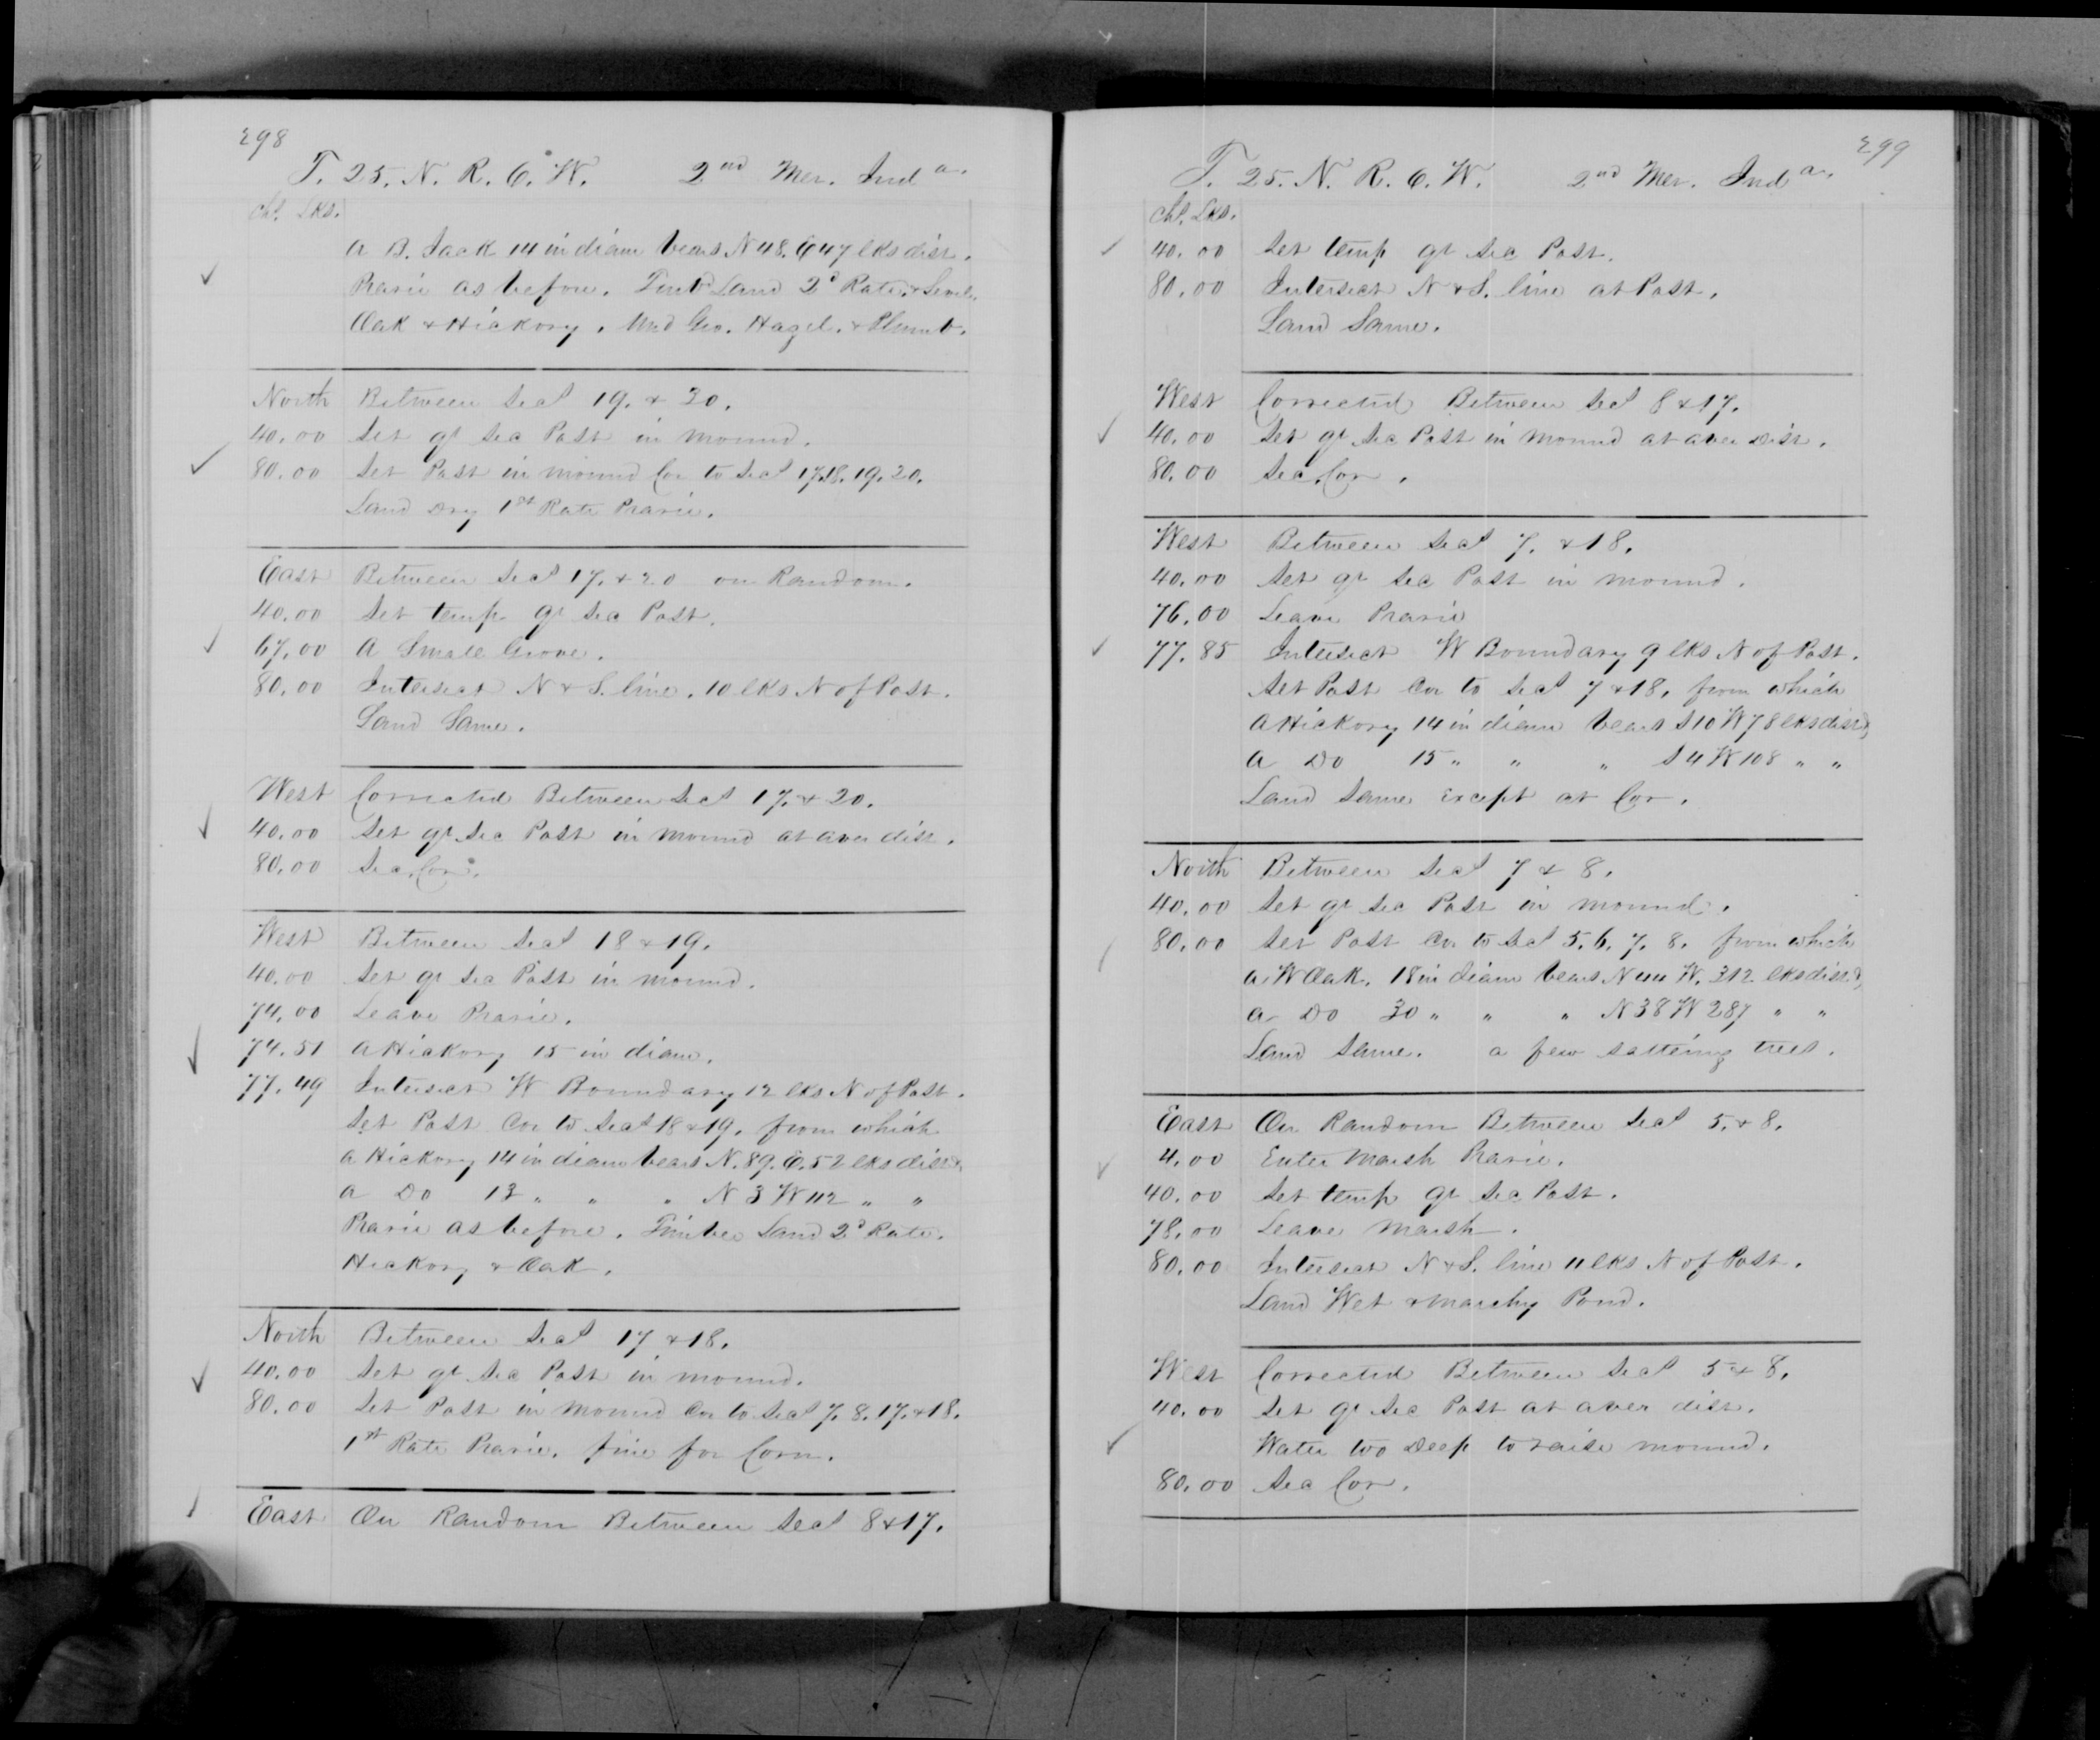 298
T. 25. N. R. 6. W. 2nd Mer. Inda.
Chs. Lks.
A B. Jack 14 in diam bears N 48. E 47 lks dist.
Prarie as before. Timbr Land 2d Rate. & Level.
Oak & Hickory. Und Gro. Hazel. & Plumb.
North Between Secs 19. & 20.
40.00 Set qr Sec Post in mound.
80.00 Set Post in mound Cor to Secs 17.18.19.20.
Land Dry 1st Rate Prarie.
East Between Secs 17. & 20 on Random.
40.00 Set temp qr Sec Post.
67.00 A Small Grove.
80.00 Intersect N & S. line. 10 lks N of Post.
Land Same.
West Corrected Between Secs 17. & 20.
40.00 Set qr Sec Post in mound at aver dist.
80.00 Sec. Cor.
West Between Secs 18 & 19.
40.00 Set qr Sec Post in mound.
74.00 Leave Prarie.
74.51 A Hickory 15 in diam.
77.49 Intersect W Boundary 12 lks N of Post.
Set Post Cor to Secs 18 & 19. from which
A Hickory 14 in diam bears N. 89. E. 52 lks dist &
a Do 13 " " " N 3 W 112 " "
Prarie as before. Timber Land 2d Rate.
Hickory & Oak.
North Between Secs 17 & 18.
40.00 Set qr Sec Post in mound.
80.00 Set Post in mound Cor to Secs 7. 8. 17. & 18.
1st Rate Prarie. fine for Corn.
East On Random Between Secs 8 & 17.
299
T. 25. N. R. 6. W. 2nd Mer. Inda.
Chs. Lks.
40.00 Set temp qr Sec Post.
80.00 Intersect N & S. line at Post.
Land Same.
West Corrected Between Secs 8 & 17.
40.00 Set qr Sec Post in mound at aver Dist.
80.00 Sec. Cor.
West Between Secs 7. & 18.
40.00 Set qr Sec Post in mound.
76.00 Leave Prarie
77.85 Intersect W Boundary 9 lks N of Post.
Set Post Cor to Secs 7 & 18. from which
A Hickory 14 in diam bears S 10 W 78 lks dist &
a Do 15 " " " S 4 W 108 " "
Land Same except at Cor.
North Between Secs 7 & 8.
40.00 Set qr Sec Post in mound.
80.00 Set Post Cor to Secs 5. 6. 7. 8. from which
a W Oak. 18 in diam bears N 44 W. 312 lks dist &
a Do 30 " " " N 38 W 287 " "
Land Same. a few sattering trees.
East On Random Between Secs 5. & 8.
4.00 Enter Marsh Prarie.
40.00 Set temp qr Sec Post.
78.00 Leave Marsh.
80.00 Intersect N & S. line 11 lks N of Post.
Land Wet & marshy Pond.
West Corrected Between Secs 5 & 8.
40.00 Set qr Sec Post at aver dist.
Water too Deep to raise mound.
80.00 Sec Cor.